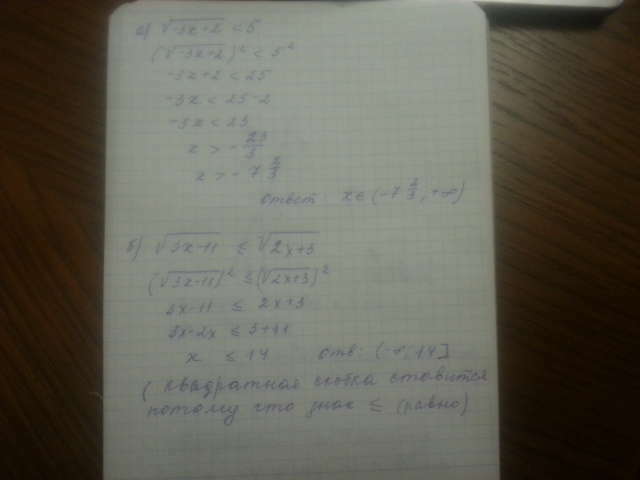 а) √-3x+2 < 5
(√-3x+2)² < 5²
-3x+2 < 25
-3x < 25-2
-3x < 23
x > -23/3
x > -7 2/3
ответ: x∈(-7 2/3, +∞)
б) √3x-11 ≤ √2x+3
(√3x-11)² ≤ (√2x+3)²
3x-11 ≤ 2x+3
3x-2x ≤ 3+11
x ≤ 14 отв: (-∞; 14]
( квадратная скобка ставится
потому что знак ≤ (равно)